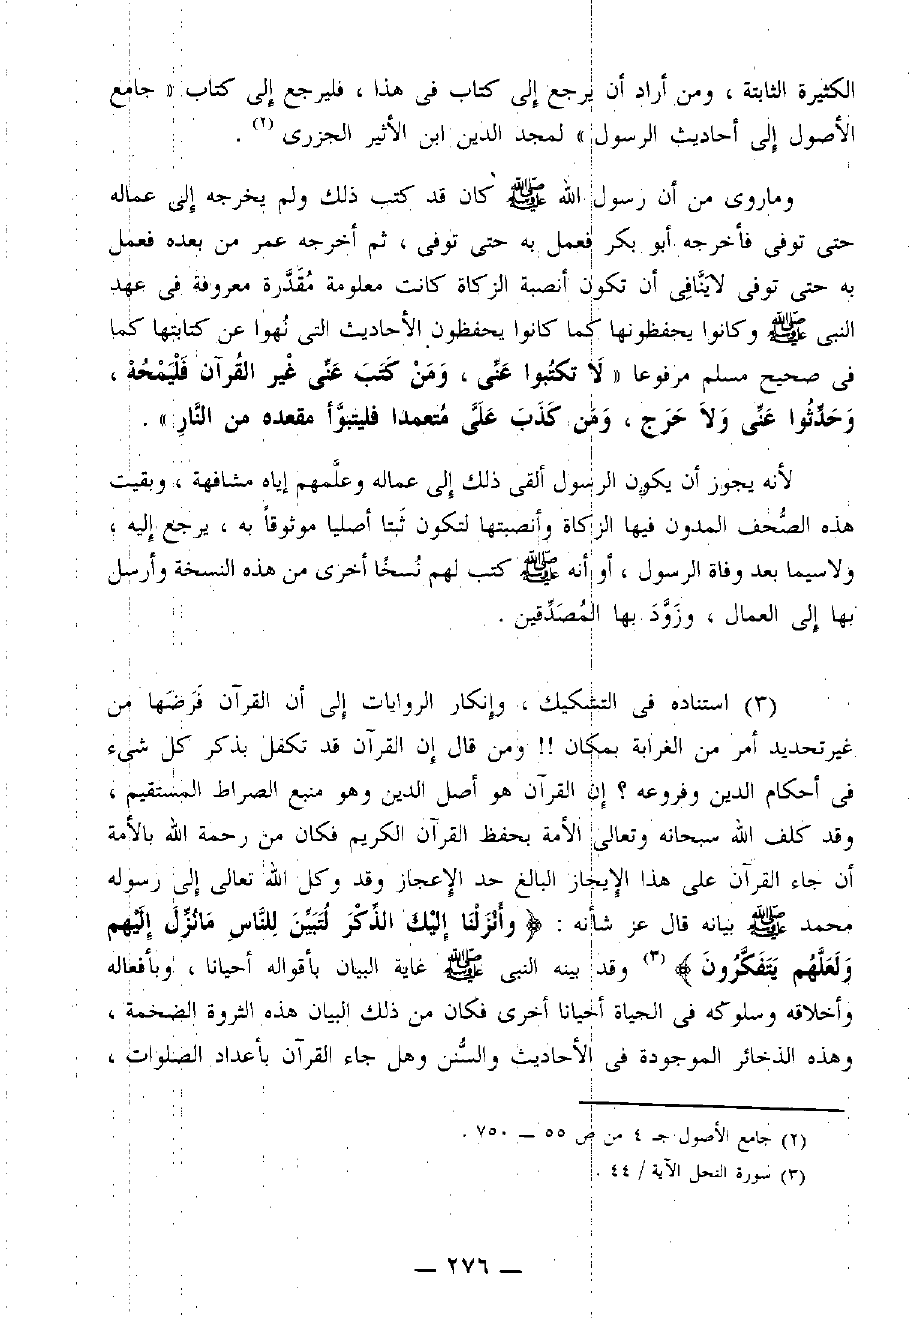 الكثيرة الثابتة ، ومن أراد أن يرجع إلى كتاب فى هذا ، فليرجع إلى كتاب « جامع
الأصول إلى أحاديث الرسول » لمجد الدين ابن الأثير الجزرى (٢) .
وماروى من أن رسول الله ﷺ كان قد كتب ذلك ولم يخرجه إلى عماله
حتى توفى فأخرجه أبو بكر فعمل به حتى توفى ، ثم أخرجه عمر من بعده فعمل
به حتى توفى لايَنَّافِى أن تكون أنصبة الزكاة كانت معلومة مُقَدَّرة معروفة فى عهد
النبى ﷺ وكانوا يحفظونها كما كانوا يحفظون الأحاديث التى نُهوا عن كتابتها كما
فى صحيح مسلم مرفوعا « لَا تكتُبوا عَنِّى ، وَمَنْ كَتَبَ عَنِّى غْير القُرآن فَلْيَمْحُهْ ،
وَحَدِّثُوا عَنِّى وَلاَ حَرَج ، وَمَن كَذَبَ عَلَىَّ مُتعمدا فليتبوَّأ مقعده من النَّارِ » .
لأنه يجوز أن يكون الرسول ألقى ذلك إلى عماله وعلَّمهم إياه مشافهة ، وبقيت
هذه الصُّحف المدون فيها الزكاة وأنصبتها لتكون ثَبتا أصليا موثوقاً به ، يرجع إليه ،
ولاسيما بعد وفاة الرسول ، أو أنه ﷺ كتب لهم نُسخًا أخرى من هذه النسخة وأرسل
بها إلى العمال ، وزَوَّدَ بها المُصَدِّقين .
(٣) استناده فى التشكيك ، وإنكار الروايات إلى أن القرآن فَرَضَها من
غيرتحديد أمر من الغرابة بمكان !! ومن قال إن القرآن قد تكفل بذكر كل شىء
فى أحكام الدين وفروعه ؟ إن القرآن هو أصل الدين وهو منبع الصراط المستقيم ،
وقد كلف الله سبحانه وتعالى الأمة بحفظ القرآن الكريم فكان من رحمة الله بالأمة
أن جاء القرآن على هذا الإيجاز البالغ حد الإعجاز وقد وكل الله تعالى إلى رسوله
محمد ﷺ بيانه قال عز شأنه : ﴿ وأَنْزَلْنَا إلَيْكَ الذِّكْرَ لُتَبَيِّنَ لِلنَّاسِ مَانُزِّلَ إلَيْهِم
وَلَعَلَّهُم يَتَفَكَّرُونَ ﴾ (٣) وقد بينه النبى ﷺ غاية البيان بأقواله أحيانا ، وبأفعاله
وأخلاقه وسلوكه فى الحياة أحيانا أخرى فكان من ذلك البيان هذه الثروة الضخمة ،
وهذه الذخائر الموجودة فى الأحاديث والسُّنن وهل جاء القرآن بأعداد الصلوات ،
(٢) جامع الأصول جـ ٤ من ص ٥٥ ــ ٧٥٠ .
(٣) سورة النحل الآية / ٤٤ .
ــ ٢٧٦ ــ